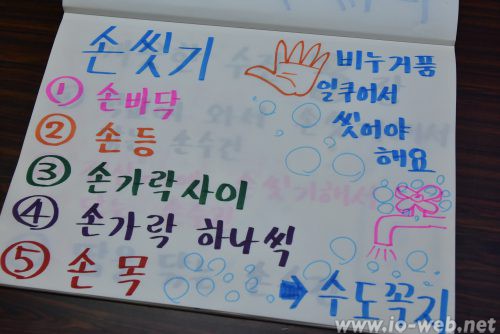 손씻기
비누거품
일쿠어서
씻어야
해요
① 손바닥
② 손등
③ 손가락사이
④ 손가락 하나씩
⑤ 손목
→ 수도꼭지
www.io-web.net